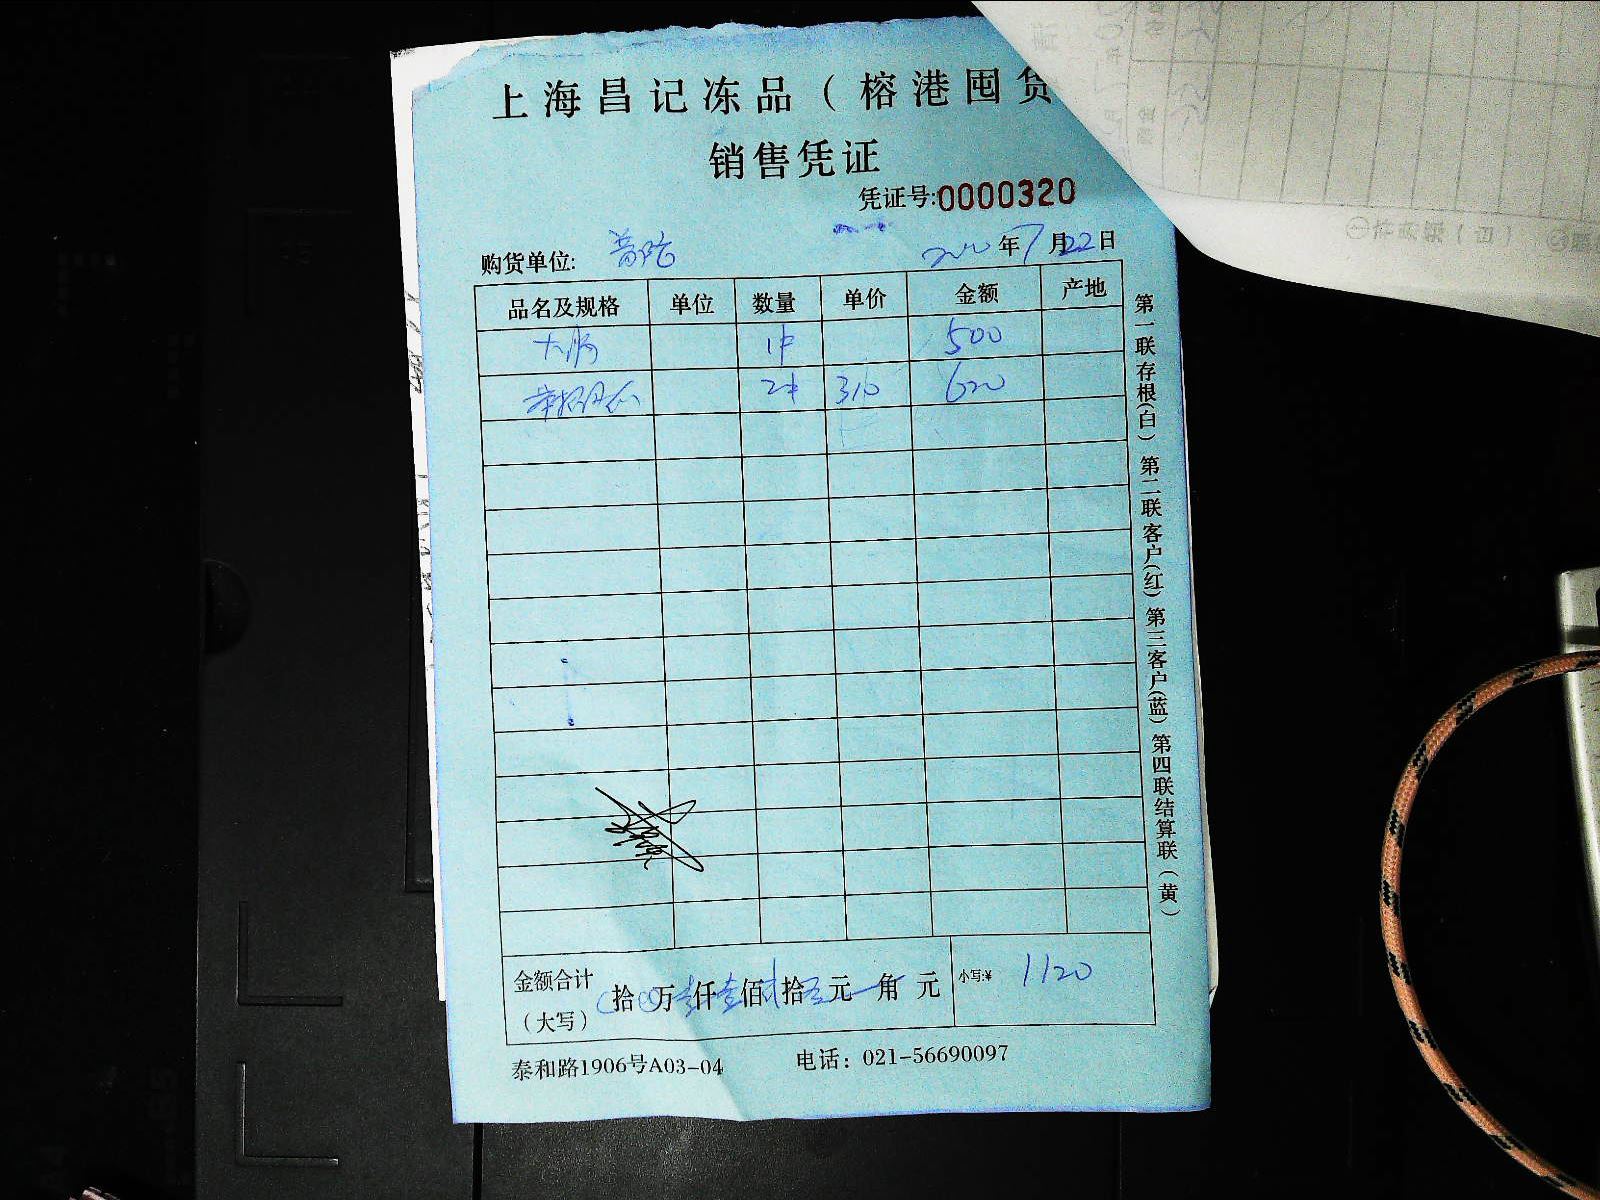 上海昌记冻品（榕港囤货
销售凭证
凭证号:0000320
购货单位: 年7月22日
品名及规格 单位 数量 单价 金额 产地
大肠 1件 500
2件 310 620
金额合计（大写） 拾 万壹仟壹佰贰拾 元 角 元 小写:¥ 1120
泰和路1906号A03-04 电话：021-56690097
第一联存根(白) 第二联客户(红) 第三客户(蓝) 第四联结算联(黄)